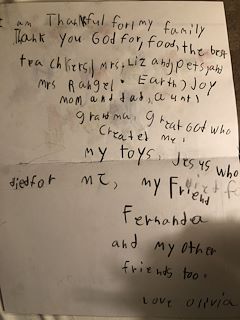 I am Thankful for my family
Thank you God for, food, the best
teachkers, Mrs. Liz and pets, and
mrs Rangel. Earth, Joy
mom and dad, aunts
grandma, great God who
created me,
my toys, Jesus who
died for me, my Friend
Fernanda
and my other
friends too.
Love Olivia